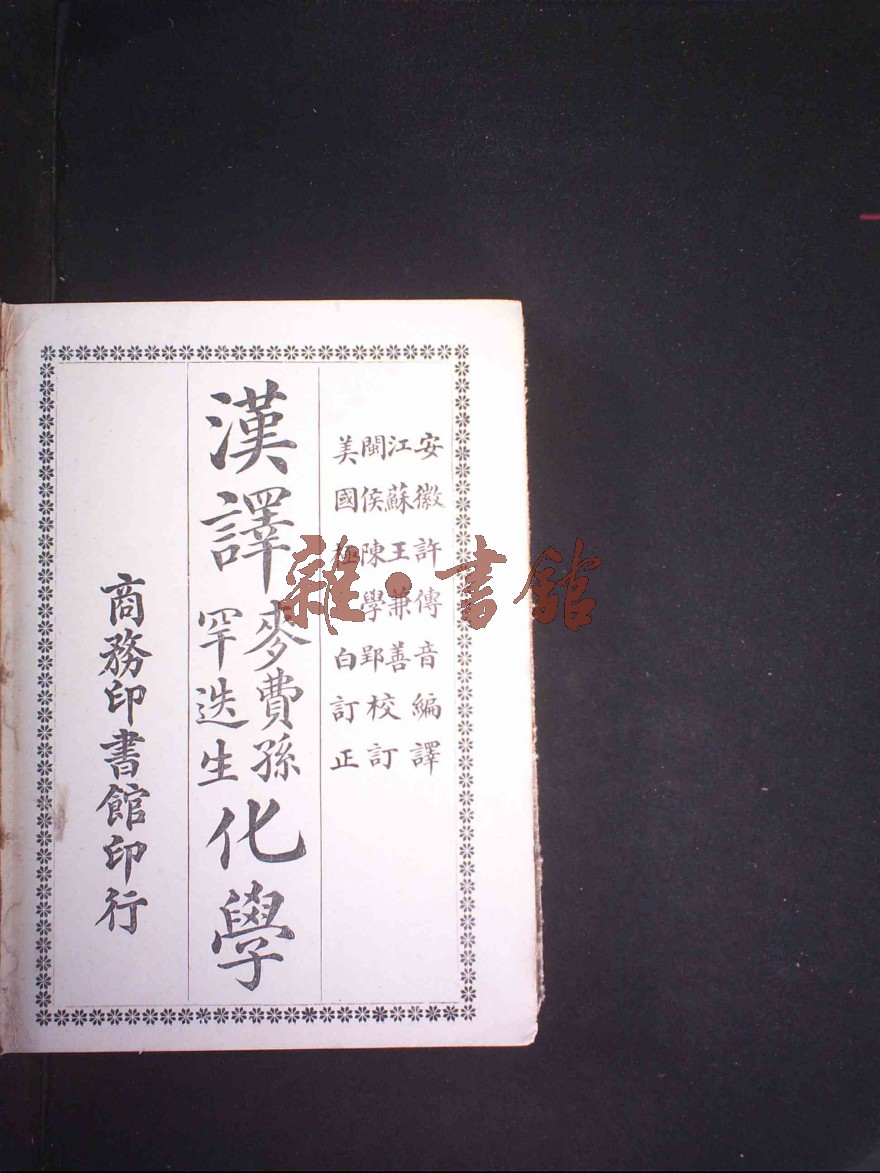 安徽許傳音編譯
江蘇王兼善
閩侯陳學郢
校訂
美國極白訂正
漢譯
麥費孫
罕迭生
化學
商務印書館印行
雜·書館